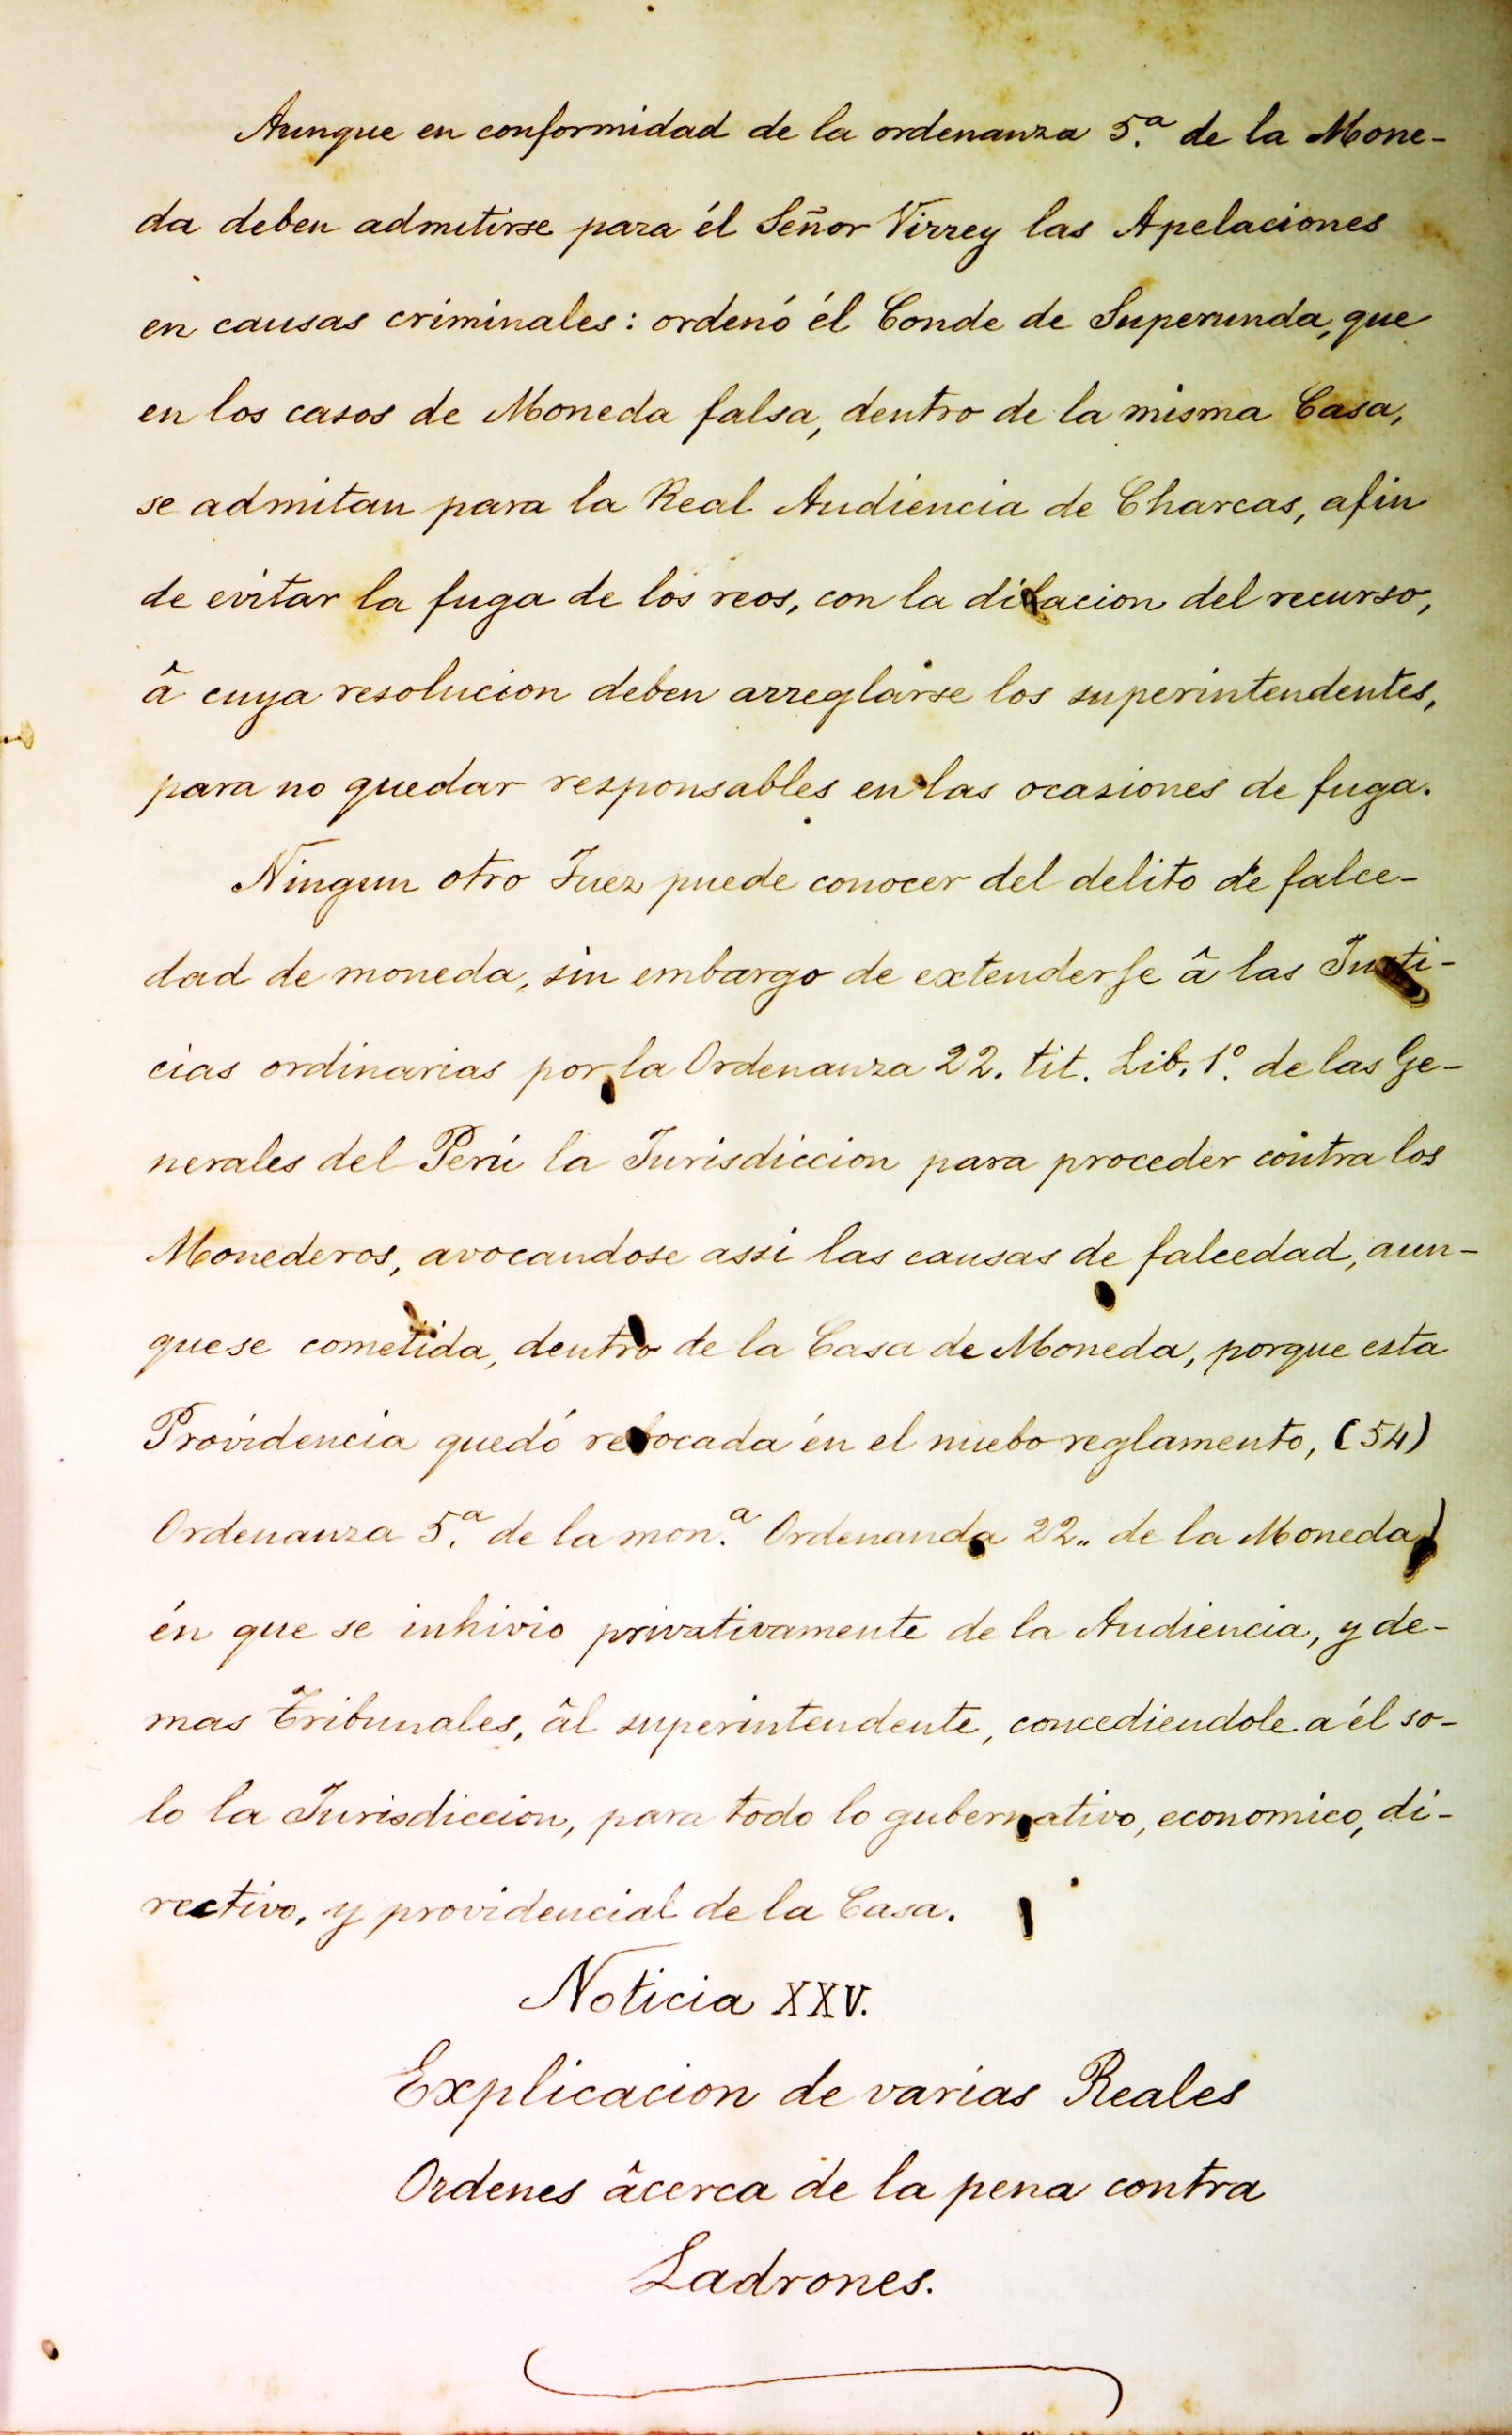 Aunque en conformidad de la ordenanza 5.ª de la Mone-
da deben admitirse para él Señor Virrey las Apelaciones
en causas criminales: ordenó él Conde de Superunda, que
en los casos de Moneda falsa, dentro de la misma Casa,
se admitan para la Real Audiencia de Charcas, afin
de evitar la fuga de los reos, con la dilacion del recurso,
â cuya resolucion deben arreglarse los superintendentes,
para no quedar responsables en las ocasiones de fuga.
Ningun otro Juez puede conocer del delito de falce-
dad de moneda, sin embargo de extenderse â las Justi-
cias ordinarias por la Ordenanza 22. tit. Lib. 1º. de las Ge-
nerales del Perú la Jurisdiccion para proceder contra los
Monederos, avocandose assi las causas de falcedad, aun-
quese cometida, dentro de la Casa de Moneda, porque esta
Providencia quedó rebocada én el nuebo reglamento, (54)
Ordenanza 5.ª de la mon.ª Ordenanda 22,, de la Moneda)
én que se inhivio privativamente de la Audiencia, y de-
mas Tribunales, âl superintendente, concediendole a él so-
lo la Jurisdiccion, para todo lo gubernativo, economico, di-
rectivo, y providencial de la Casa.
Noticia XXV.
Explicacion de varias Reales
Ordenes âcerca de la pena contra
Ladrones.